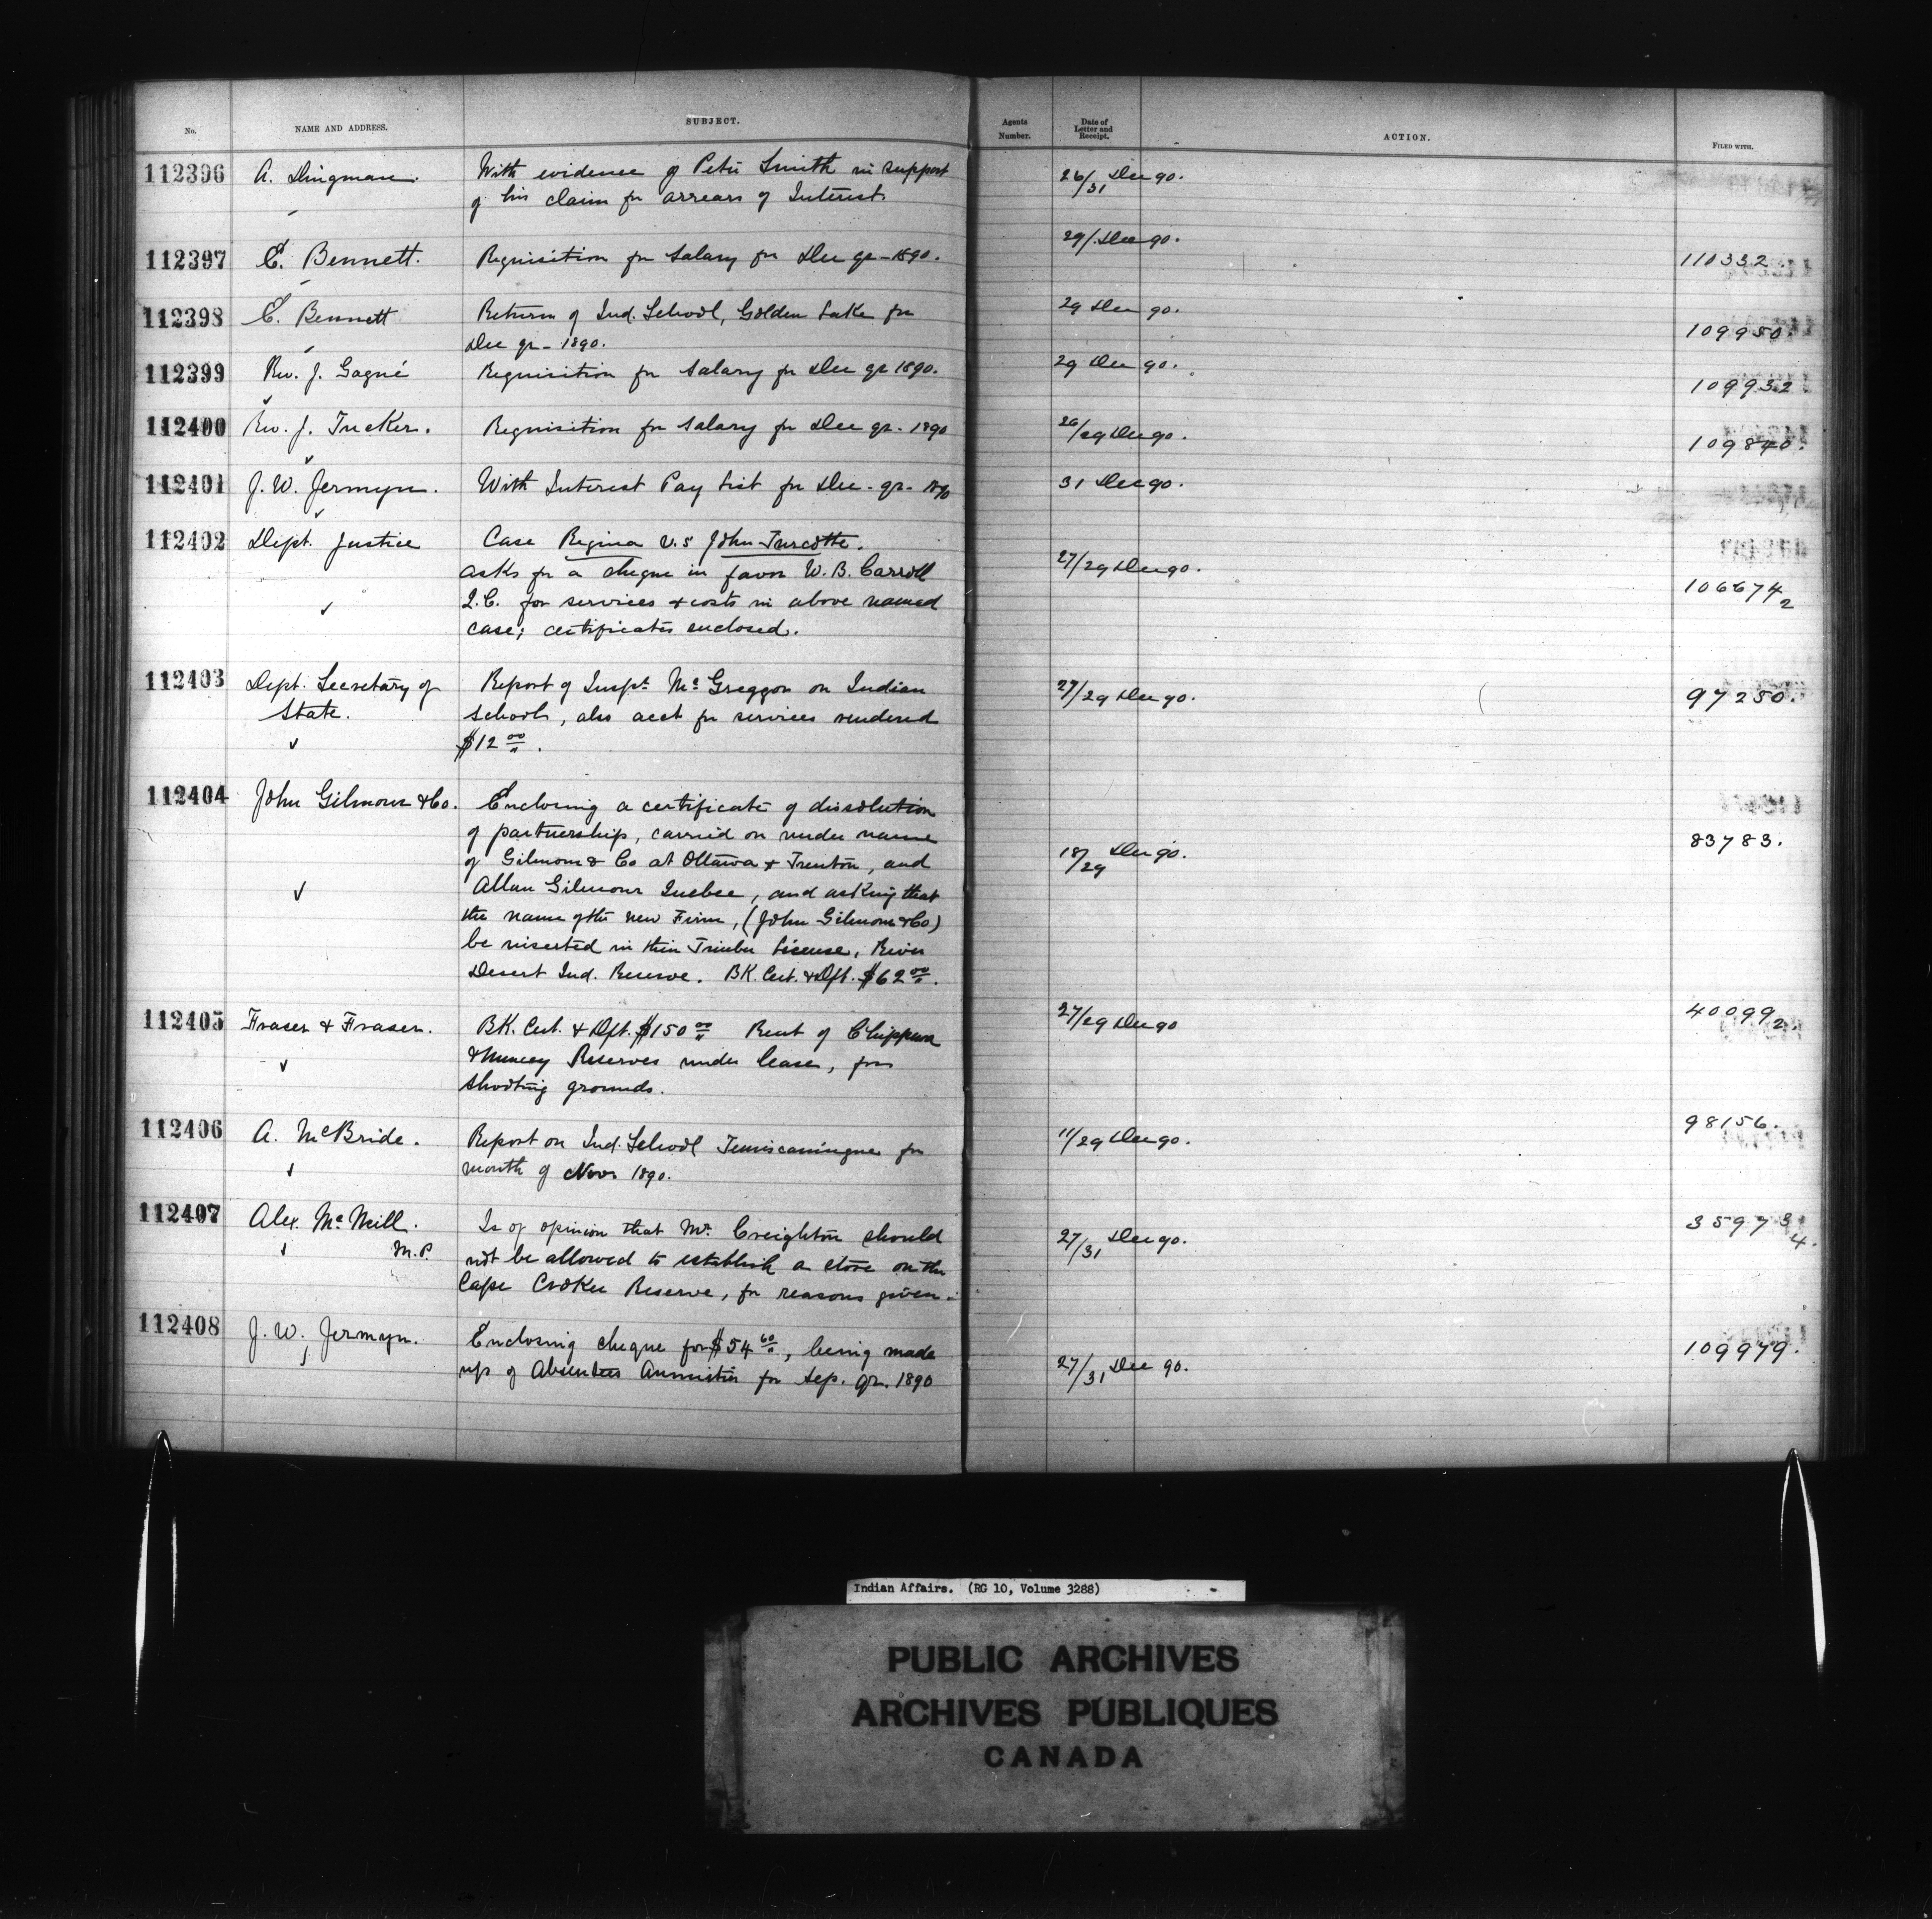 No.
NAME AND ADDRESS.
SUBJECT.
Agents Number.
Date of Letter and Receipt.
ACTION.
FILED WITH.
112396 A. Dingman. With evidence of Peter Smith in support 26/31 Dec 90.
of his claim for arrears of Interest.
112397 E. Bennett. Requisition for Salary for Dec qr - 1890. 29/. Dec 90. 110332.
112398 E. Bennett Return of Ind. School, Golden Lake for 29 Dec 90. 109950.
Dec qr - 1890.
112399 Rev. J. Gagné Requisition for Salary for Dec qr 1890. 29 Dec 90. 109932
112400 Rev. J. Tucker. Requisition for Salary for Dec qr. 1890 26/29 Dec 90. 109840.
112401 J. W. Jermyn. With Interest Pay List for Dec - qr - 1890 31 Dec 90.
112402 Dept. Justice Case Regina v.s John Turcotte.
asks for a cheque in favor W. B. Carroll 27/29 Dec 90. 106674 2
Q.C. for services & costs in above named
case; certificates enclosed.
112403 Dept. Secretary of Report of Inspt. Mc Greggor on Indian 27/29 Dec 90. 97250.
State. Schools, also acct for services rendered
$12 00/".
112404 John Gilmour & Co. Enclosing a certificate of dissolution
of partnership, carried on under name 83783.
of Gilmour & Co at Ottawa & Trenton, and 18/29 Dec 90.
Allan Gilmour Quebec, and asking that
the name of the new Firm, (John Gilmour & Co)
be inserted in their Timber License, River
Desert Ind. Reserve. BK. Cert. & Dft. $62 00/".
112405 Fraser & Fraser. BK. Cert. & Dft. $150 00/" Rent of Chippewa 27/29 Dec 90 40099 2.
& Muncey Reserves under lease, for
shooting grounds.
112406 A. McBride. Report on Ind. School Temiscamingue for 11/29 Dec 90. 98156.
month of Novr 1890.
112407 Alex. Mc Neill. Is of opinion that Mr. Creighton should 27/31 Dec 90. 35973 4.
M.P. not be allowed to establish a store on the
Cape Croker Reserve, for reasons given.
112408 J. W. Jermyn. Enclosing cheque for $54 60/", being made 27/31 Dec 90. 109979.
up of Absentees Annuities for Sep. qr. 1890
Indian Affairs. (RG 10, Volume 3288)
PUBLIC ARCHIVES
ARCHIVES PUBLIQUES
CANADA